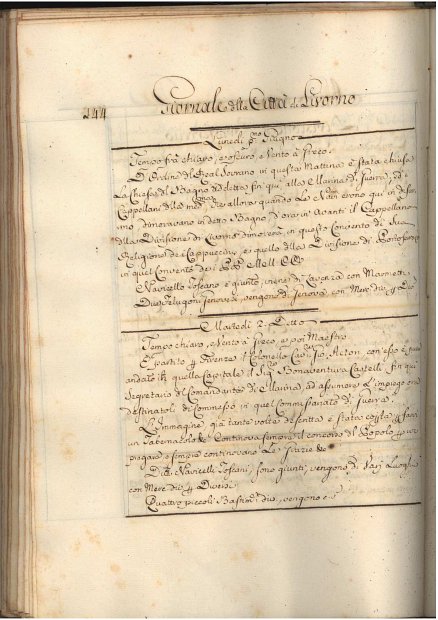 244
Giornale della Città di Livorno
Lunedì p.mo Giugno
Tempo frà chiaro, e oscuro, e Vento à Greco.
D'Ordine del Real Sovrano in questa Mattina è stata chiusa
La Chiesa del Bagno addetta fin qui alla Marina di Guerra, ed i
Cappellani della med.ma
mo dimoravano in detto Bagno d'ora in Avanti il Cappellano
della Divisione di Livorno dimorerà in questo Convento di
Religiosi de Cappuccini, e quello della Divisione di Portoferraio
in quel Convento de
Navicello Toscano è giunto, viene di Lavenza con Marmi etc.
Due Feluconi Genovesi vengono di Genova con Merc.
Martedì 2. Detto
Tempo chiaro, e Vento à Greco, e poi Maestro.
È partito Firenze il Colonello Cav. Gio. Acton, con esso è
andato in quella Capitale il Sig. Bonaventura Castelli fin qui
Segretario del Comandante di Marina, ad assumere l'impiego
destinatoli di Commesso in quel Commissariato di Guerra.
L'Immagine già tante volte descritta è stata
un Tabernacolo Continova sempre il concorso del Popolo
pregare e sempre continovano Le Grazie
Navicelli Toscani, sono giunti, vengono di Varj Luoghi
con Merc. Diversi
Quattro piccoli Bastim. vengono